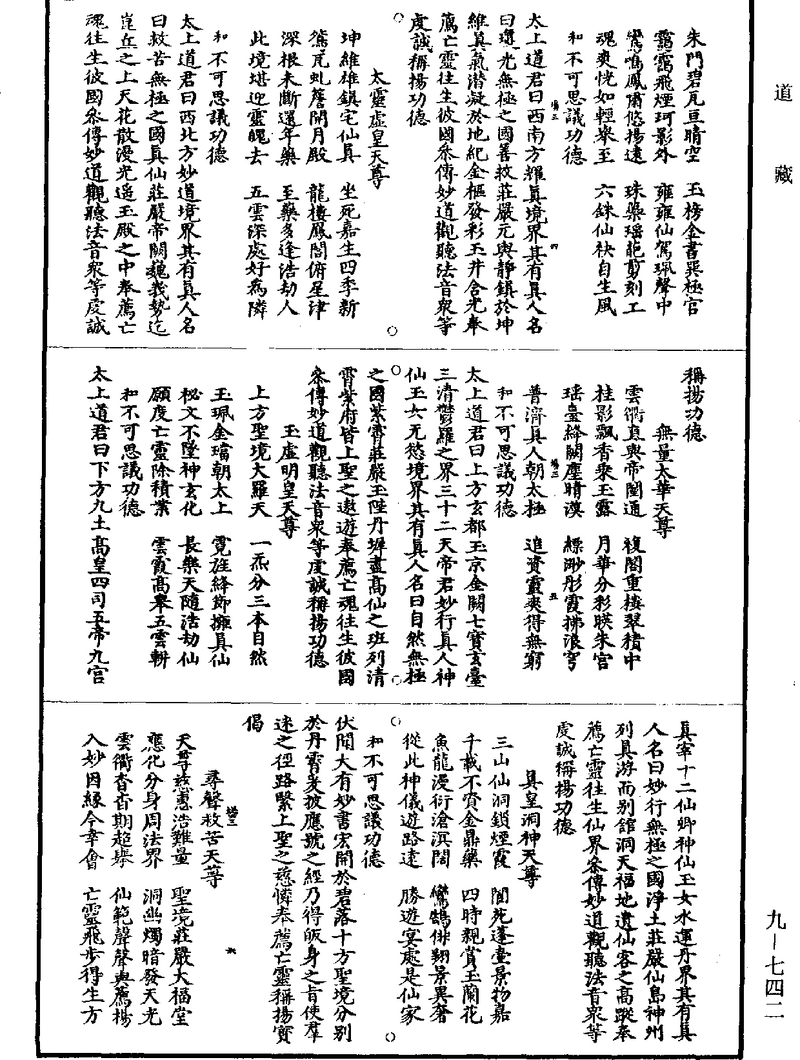 道藏
朱門碧瓦亘晴空　玉榜金書異極宫
靄靄飛煙珂影外　雍雍仙駕珮聲中
鸞鳴鳳爾悠揚遠　珠蘂瑶葩剪刻工
魂爽恍如輕舉至　六銖仙袂自生風
和不可思議功德
太上道君曰西南方耀真境界其有真人名
曰還光無極之國善救莊嚴元輿靜鎮於坤
維真氣潜凝於地紀金樞發彩玉井含光奉
薦亡靈往生彼國叅傳妙道觀聽法音衆等
虔誠稱揚功德
太靈虚皇天尊
坤維雄鎮宅仙真　坐死嘉生四季新
鴛瓦虬簷開月殿　龍樓鳳閣俯星津
深根未斷還年藥　至藥多逢浩劫人
此境堪迎靈魄去　五雲深處好為隣
和不可思議功德
太上道君曰西北方妙道境界其有真人名
曰救苦無極之國真仙莊嚴帝闕巍峩勢迄
崑丘之上天花散漫光遥玉殿之中奉薦亡
魂往生彼國叅傳妙道觀聽法音衆等虔誠
稱揚功德
無量太華天尊
雲衢直與帝閽通　複閣重樓翠積中
桂影飄香來玉露　月華分彩暎朱宫
瑶臺絳闕塵晴漠　縹渺彤霞拂浪穹
普濟真人朝太極　追資靈爽得無窮
和不可思議功德
太上道君曰上方玄都玉京金闕七寳玄臺
三清欝羅之界三十二天帝君妙行真人神
仙玉女无慾境界其有真人名曰自然無極
之國紫霄莊嚴玉陛丹墀盡高仙之班列清
霄紫府皆上聖之遨遊奉薦亡魂往生彼國
叅傳妙道觀聽法音衆等虔誠稱揚功德
玉虚明皇天尊
上方聖境大羅天　一炁分三本自然
玉珮金璫朝太上　霓旌絳節擁真仙
秘文不墜神玄化　長樂天隨浩劫仙
願度亡靈除積業　雲霞高舉五雲軿
和不可思議功德
太上道君曰下方九土高皇四司五帝九宫
真宰十二仙卿神仙玉女水運丹界其有真
人名曰妙行無極之國淨土莊嚴仙島神州
列真游而别館洞天福地遺仙客之高蹤奉
薦亡靈往生仙界叅傳妙道觀聽法音衆等
虔誠稱揚功德
真皇洞神天尊
三山仙洞鎖煙霞　閬苑蓬臺景物嘉
千載不賞金鼎藥　四時親賞玉蘭花
魚龍漫衍滄溟闊　鸞鶴俳翔景異奢
從此神儀遊路逺　勝遊宴處是仙家
和不可思議功德
伏聞大有妙書宏開於碧落十方聖境分别
於丹霄爰披應號之經乃得皈身之旨使羣
迷之徑路緊上聖之慈憐奉薦亡靈稱揚寳
偈
尋聲救苦天尊
天尊慈惠浩難量　聖境莊嚴大福堂
應化分身周法界　洞幽燭暗發天光
雲衢杳杳期超舉　仙範聲聲與薦揚
入妙因緣今幸會　亡靈飛步得生方
九—七四二